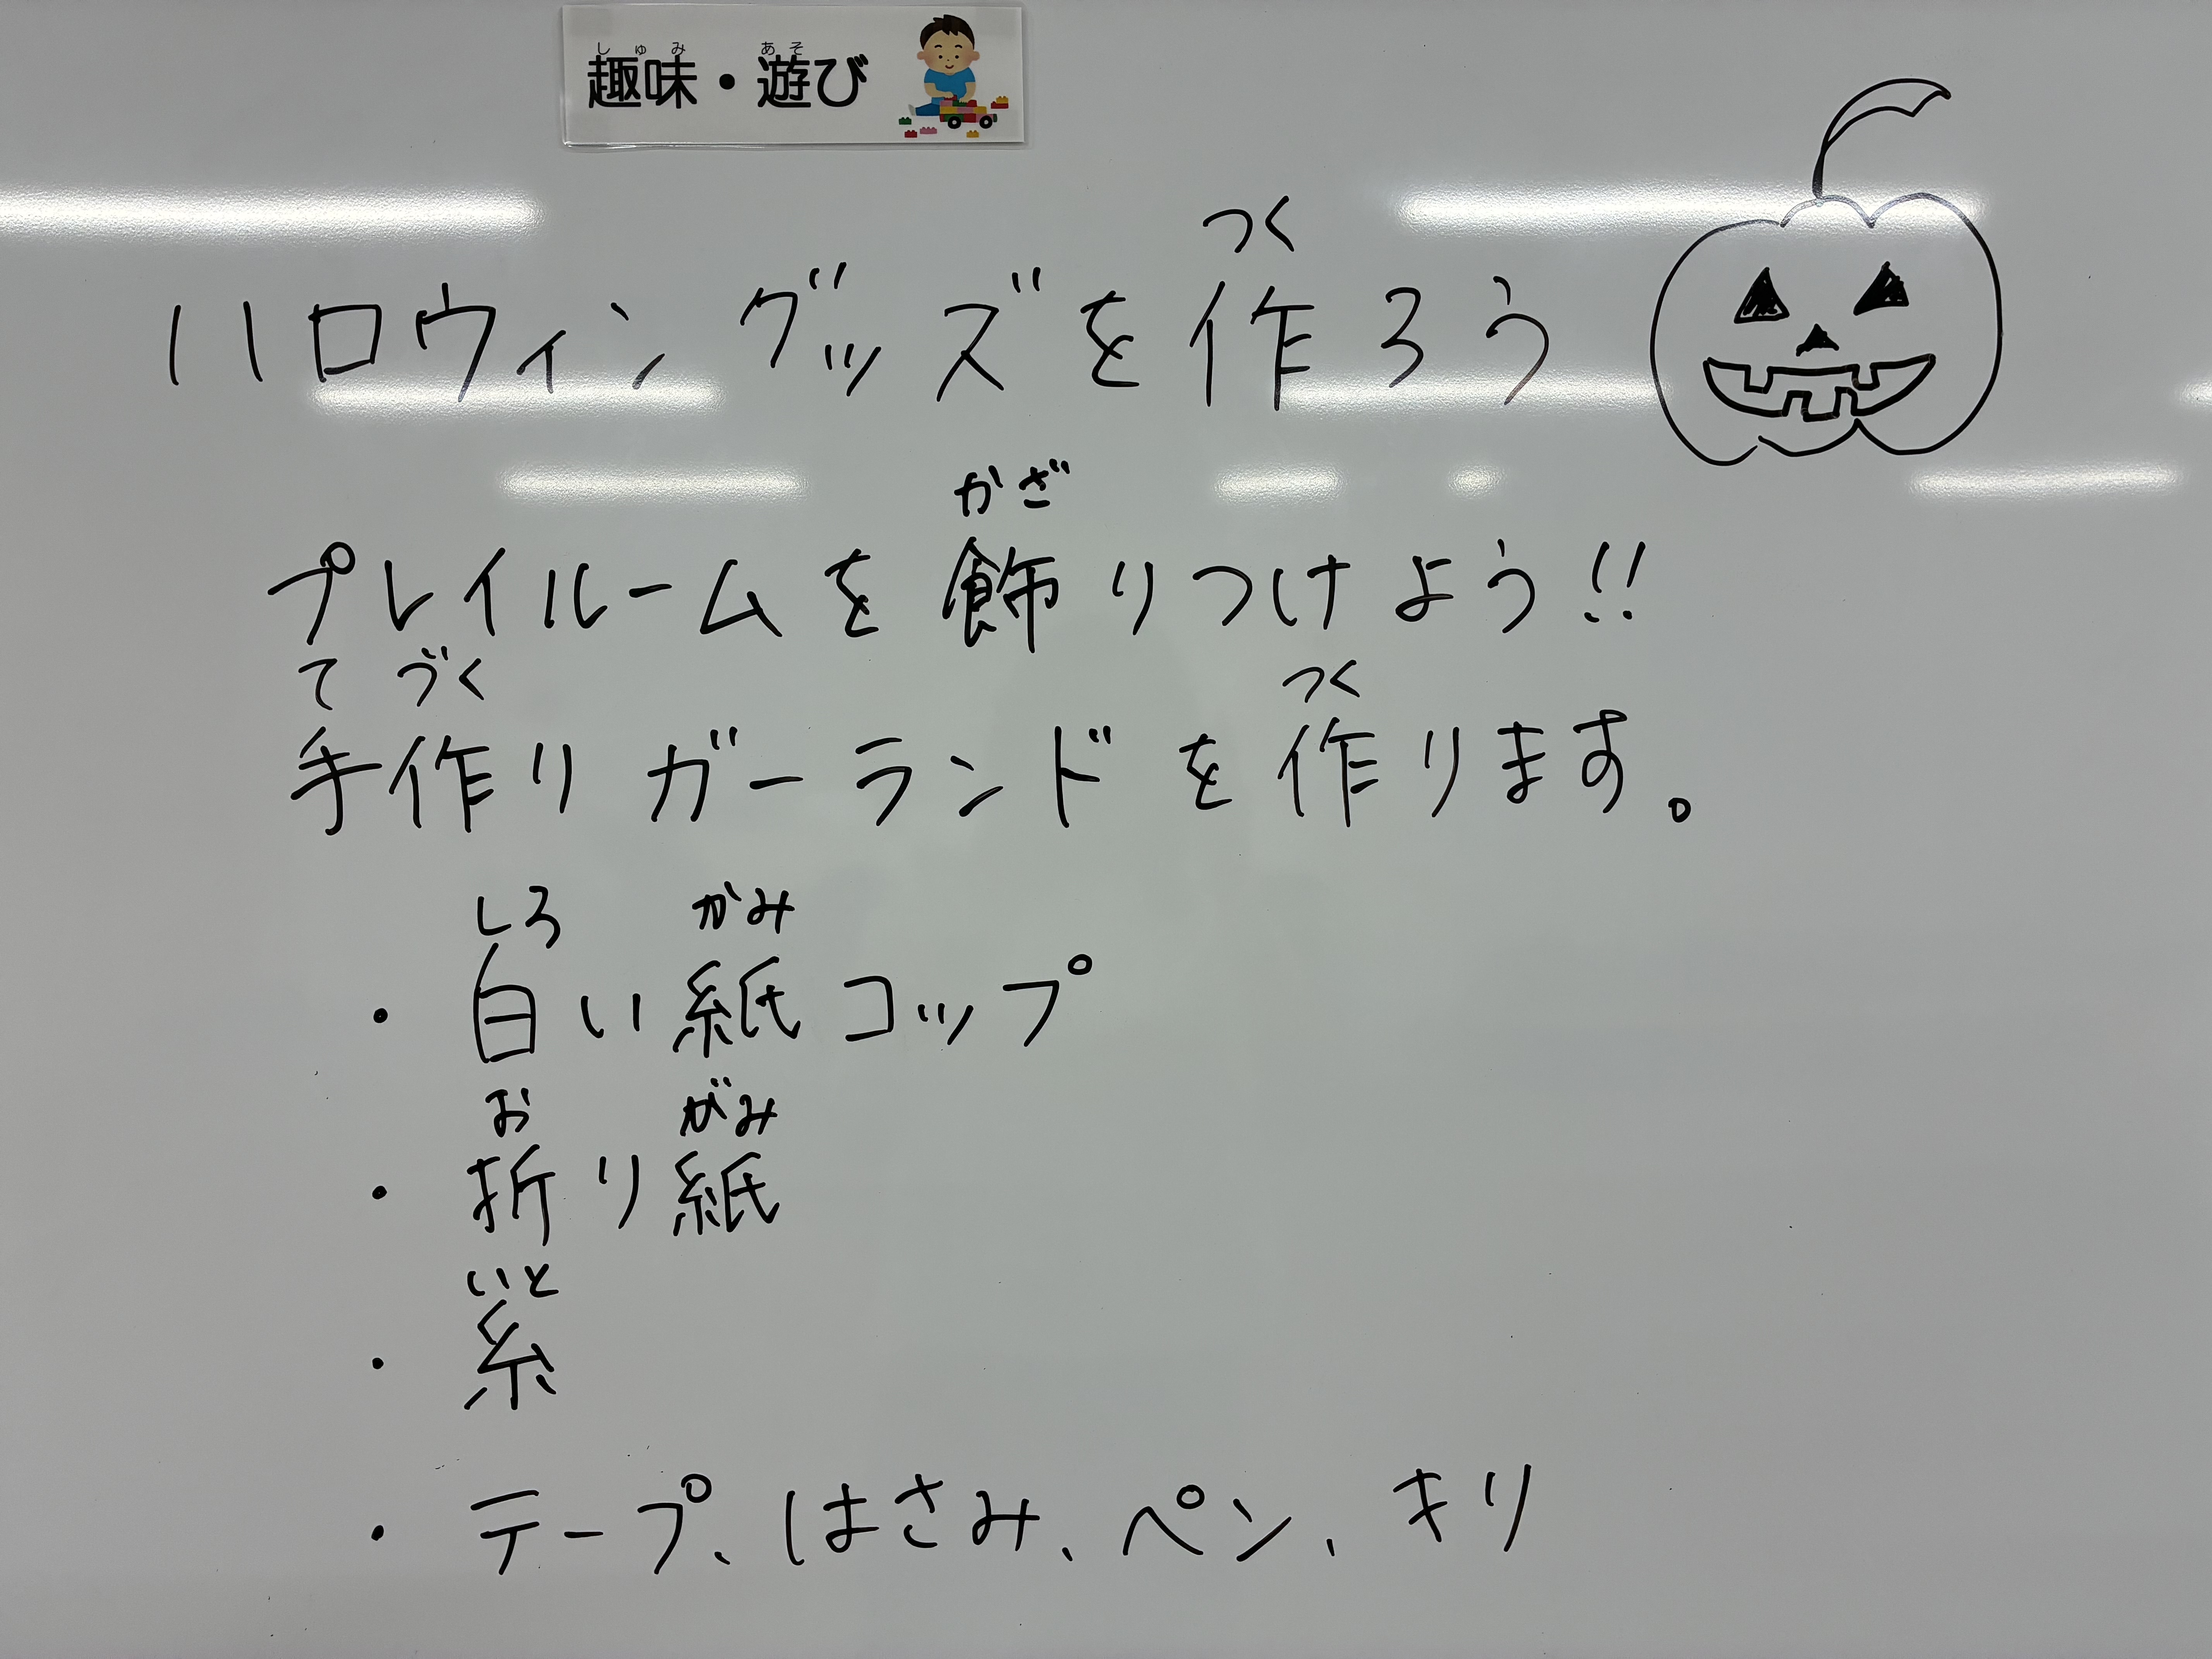 しゅみ あそ
趣味・遊び
つく
ハロウィングッズを作ろう
かざ
プレイルームを飾りつけよう!!
てづく つく
手作りガーランドを作ります。
しろ がみ
・白い紙コップ
お がみ
・折り紙
いと
・糸
・テープ、はさみ、ペン、キリ